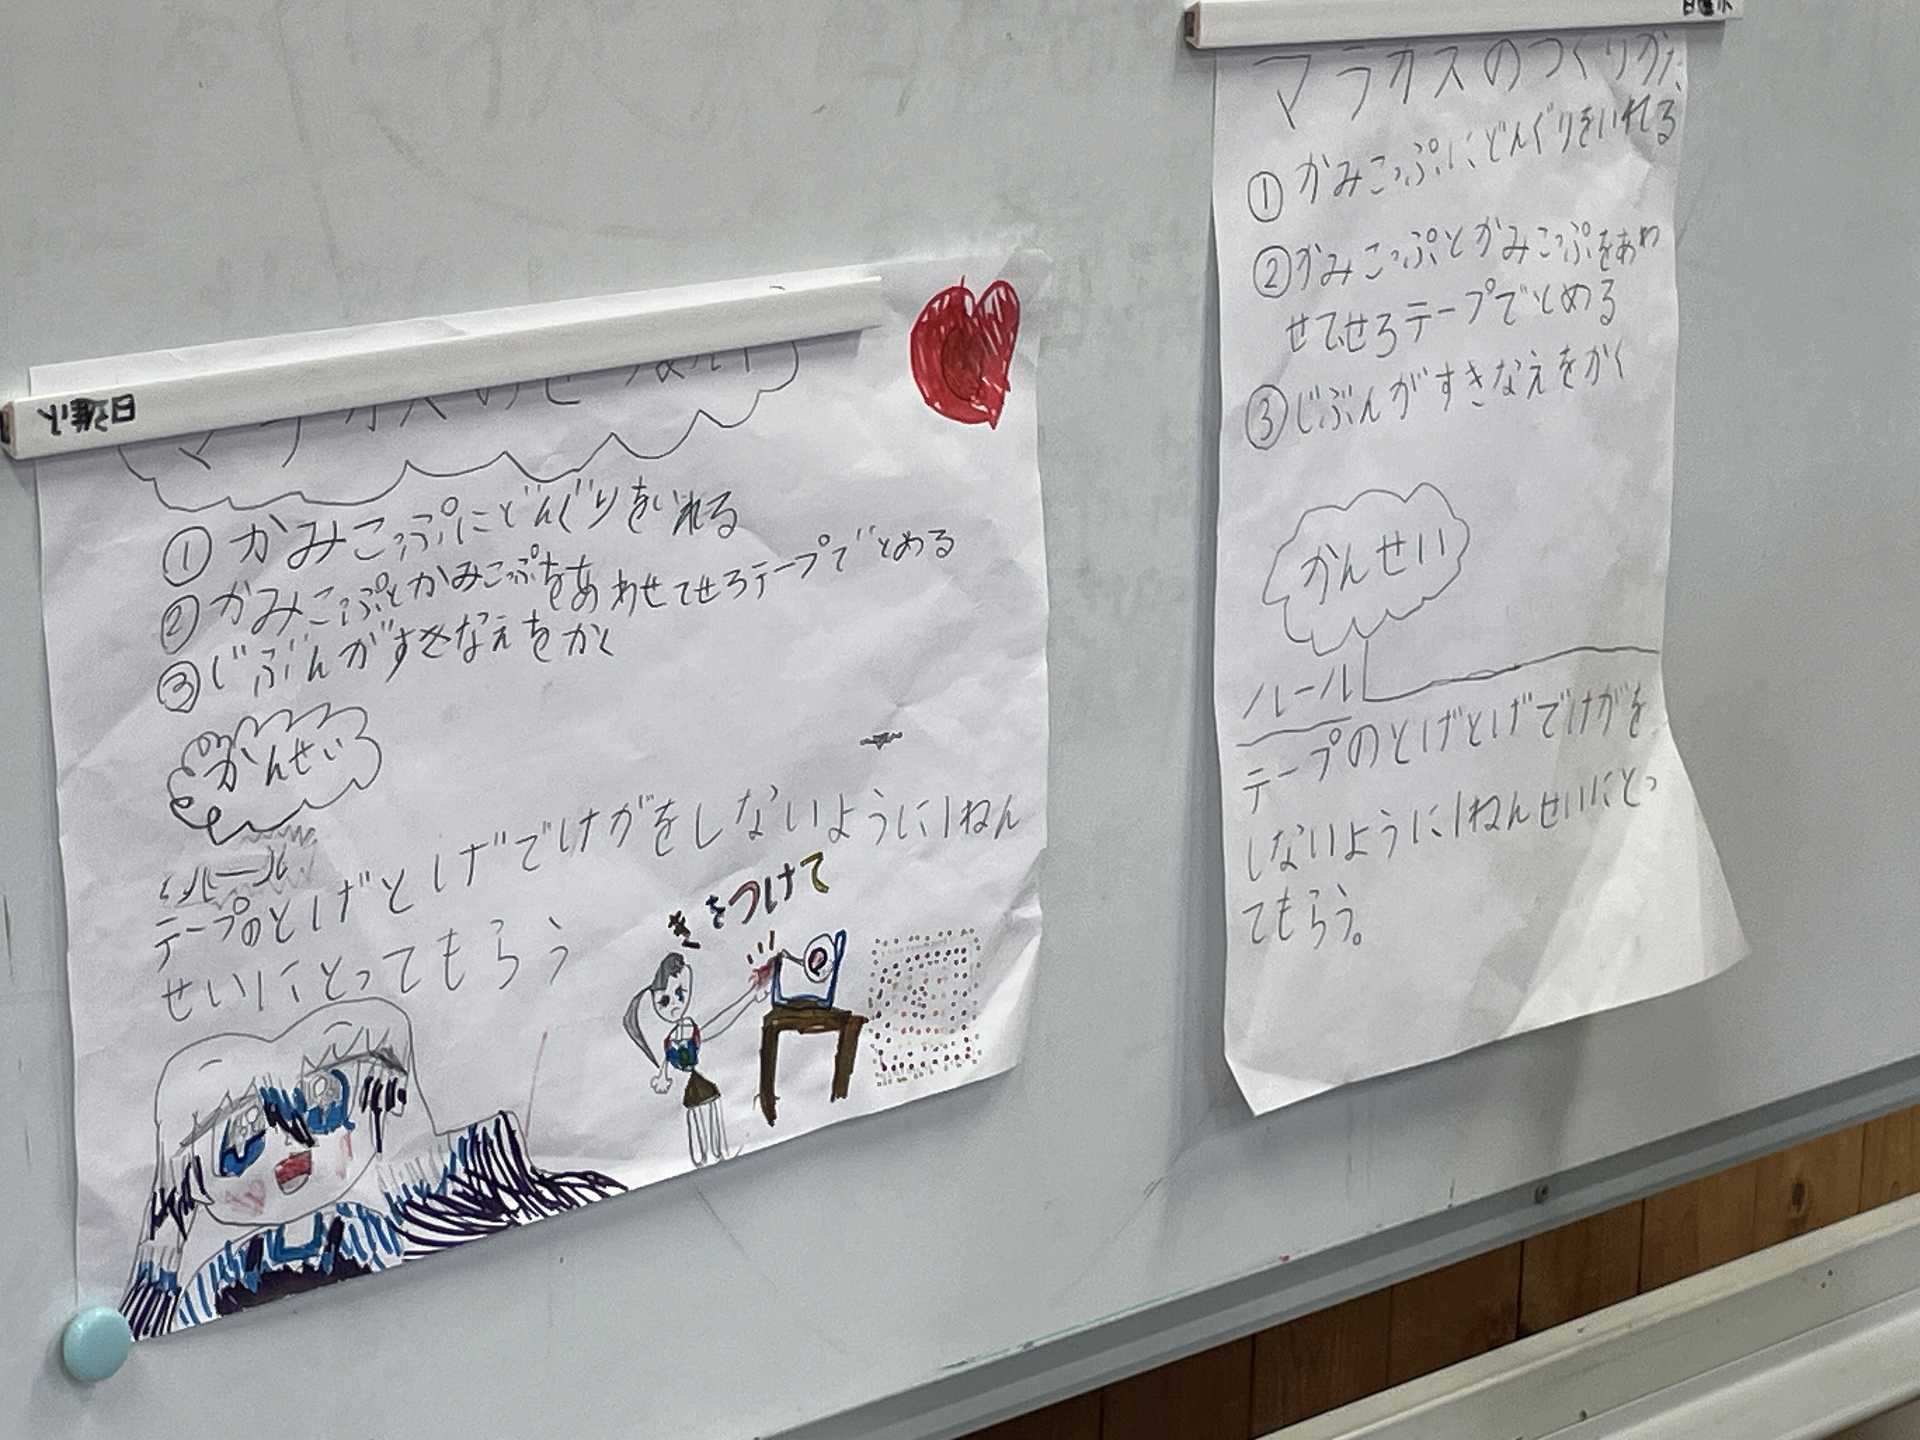 マラカスのせつめい
①かみこっぷにどんぐりをいれる
②かみこっぷとかみこっぷをあわせてせろテープでとめる
③じぶんがすきなえをかく
かんせい
ルール
テープのとげとげでけがをしないように1ねん
せいにとってもらう
きをつけて
マラカスのつくりかた
①かみこっぷにどんぐりをいれる
②かみこっぷとかみこっぷをあわ
せてせろテープでとめる
③じぶんがすきなえをかく
かんせい
ルール
テープのとげとげでけがを
しないように1ねんせいにとっ
てもらう。